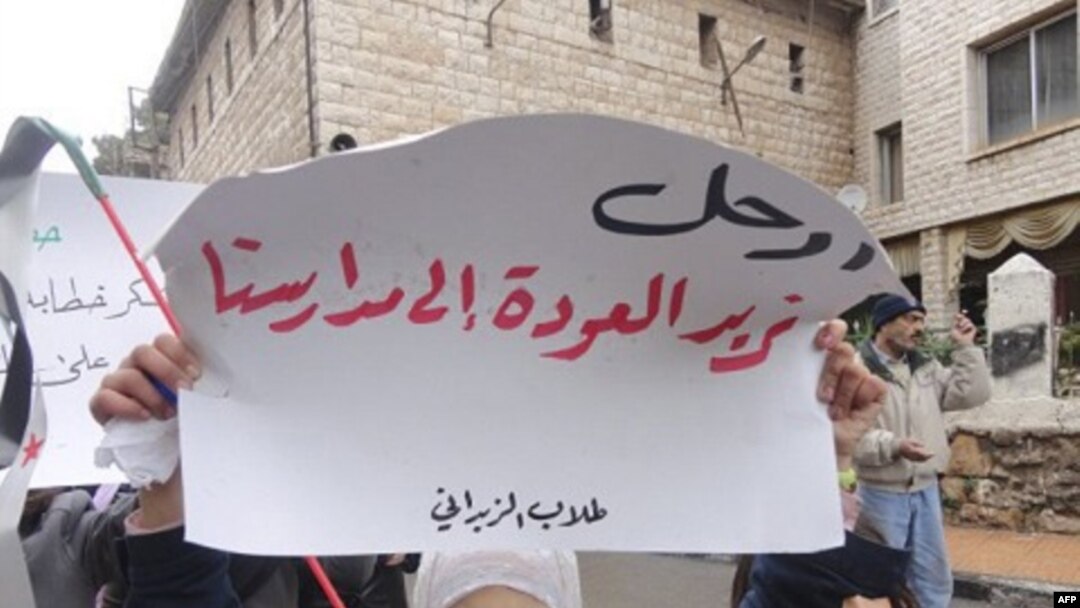 ارحل
نريد العودة إلى مدارسنا
طلاب الزبداني
خطابه
على
AFP